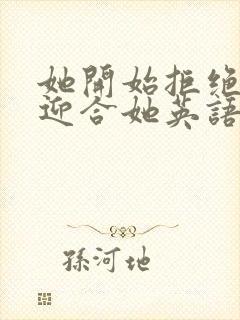 她開始拒绝
迎合她英語
孫河地